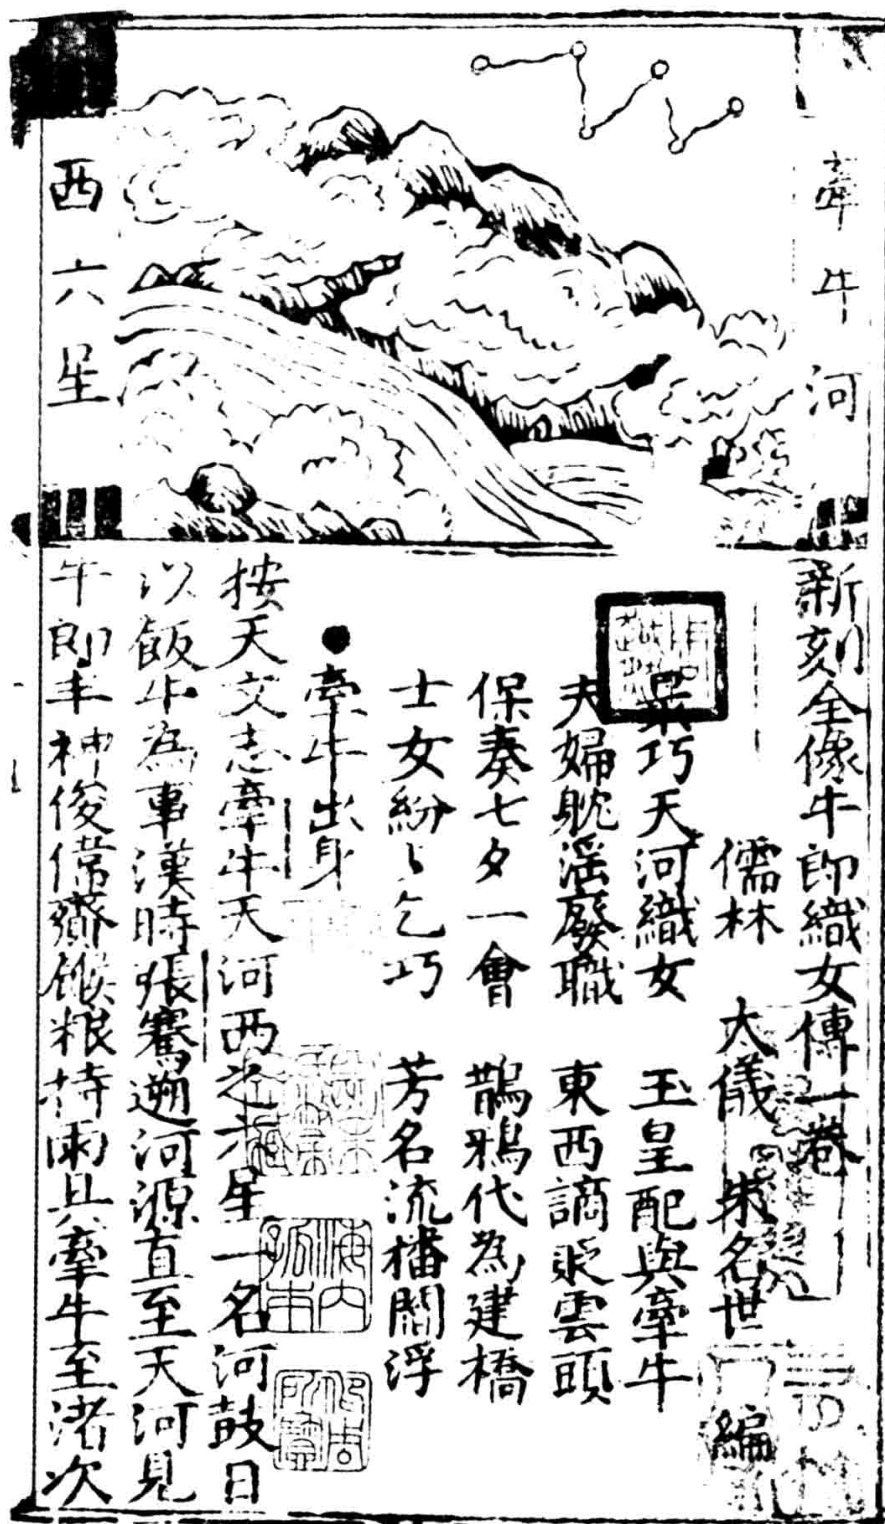 牽牛河
西六星
新刻全像牛郎織女傳一卷
儒林 太儀 朱名世 編
巧天河織女 玉皇配與牽牛
夫婦躭淫廢職 東西謫泒雲頭
保奏七夕一會 鵲鴉代為建橋
士女紛〻乞巧 芳名流播閻浮
●牽牛出身
按天文志牽牛天河西之六星一名河鼓日
以飯牛為事漢時張騫遡河源直至天河見
牛郎丰神俊偉齎餱粮持雨具牽牛至渚次
海内孤本